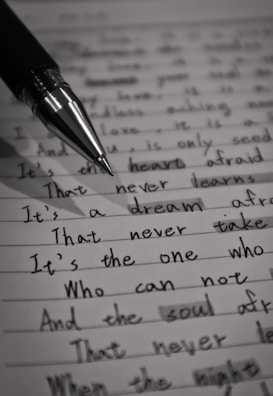 love, it is a
And you, is only seed
It's the heart afraid
That never learns
It's a dream afra
That never take
It's the one who
Who can not
And the soul afr
That never le
When the night